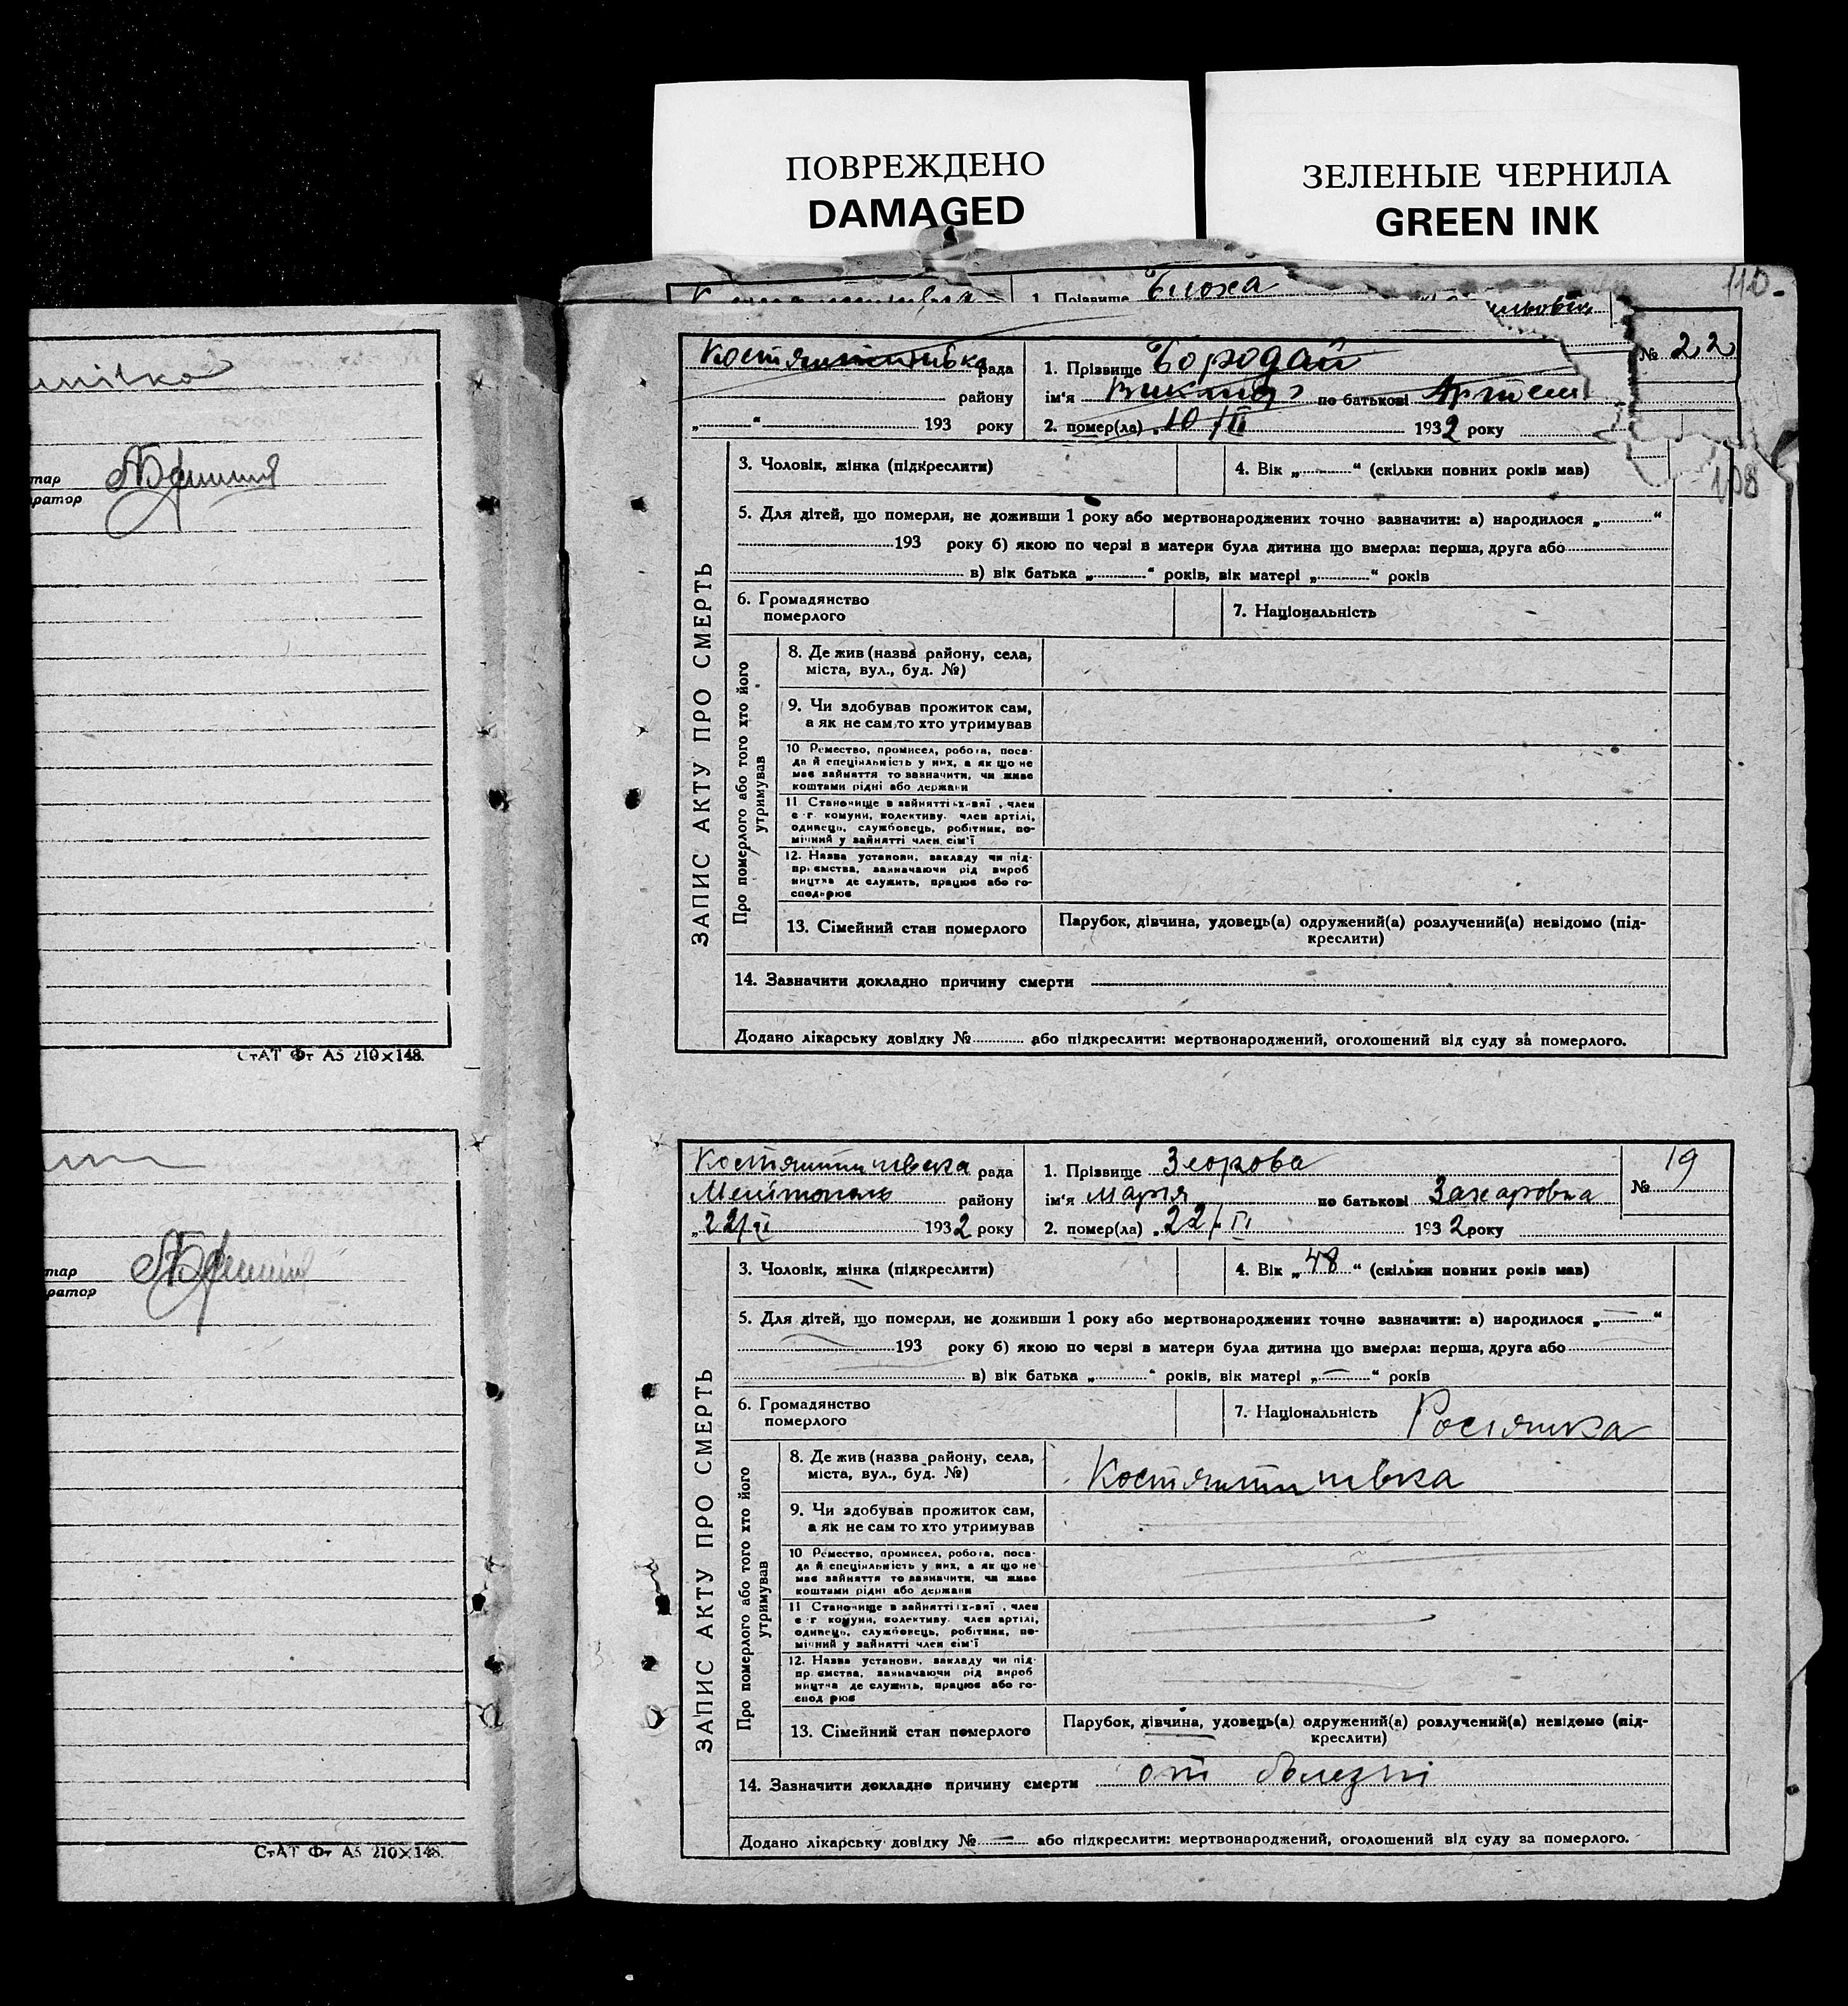 ПОВРЕЖДЕНО
DAMAGED
ЗЕЛЕНЫЕ ЧЕРНИЛА
GREEN INK
110.
1. Прізвище Блоха
№ 22
108
Костянтинівка рада
району
„ “ 193 року
1. Прізвище Бородай
ім'я Виктор по батькові Артем
2. помер(ла) „ 10/II 1932 року
ЗАПИС АКТУ ПРО СМЕРТЬ
3. Чоловік, жінка (підкреслити)
4. Вік „ “ (скільки повних років мав)
5. Для дітей, що померли, не доживши 1 року або мертвонароджених точно зазначити: а) народилося „ “
193 року б) якою по черзі в матери була дитина що вмерла: перша, друга або
в) вік батька „ “ років, вік матері „ “ років
6. Громадянство
померлого
7. Національність
Про померлого або того хто його
утримував
8. Де жив (назва району, села,
міста, вул., буд. №)
9. Чи здобував прожиток сам,
а як не сам то хто утримував
10 Ремество, промисел, робота, поса-
да й спеціяльність у них, а як що не
має зайняття то зазначити, чи живе
коштами рідні або держави
11 Становище в зайнятті член
с г. комуни, колективу. член артілі,
одинець, службовець, робітник, по-
мічний у зайнятті член сім'ї
12. Назва установи, закладу чи під-
приємства, зазначаючи рід вироб
ництва де служить, працює або го-
сподарює
13. Сімейний стан померлого
Парубок, дівчина, удовець(а) одружений(а) розлучений(а) невідомо (під-
креслити)
14. Зазначити докладно причину смерти
Додано лікарську довідку № або підкреслити: мертвонароджений, оголошений від суду за померлого.
СтАТ Фт А5 210×148.
Костянтинівка рада
Мелітополь району
„ 22/II 1932 року
1. Прізвище Згорова
ім'я Марія по батькові Захаровна
2. помер(ла) „ 22/II 1932 року
№ 19
ЗАПИС АКТУ ПРО СМЕРТЬ
3. Чоловік, жінка (підкреслити)
4. Вік „ 48 “ (скільки повних років мав)
5. Для дітей, що померли, не доживши 1 року або мертвонароджених точно зазначити: а) народилося „ “
193 року б) якою по черзі в матери була дитина що вмерла: перша, друга або
в) вік батька „ “ років, вік матері „ “ років
6. Громадянство
померлого
7. Національність Росіянка
Про померлого або того хто його
утримував
8. Де жив (назва району, села,
міста, вул., буд. №)
Костянтинівка
9. Чи здобував прожиток сам,
а як не сам то хто утримував
10 Ремество, промисел, робота, поса-
да й спеціяльність у них, а як що не
має зайняття то зазначити, чи живе
коштами рідні або держави
11 Становище в зайнятті член
с г комуни, колективу. член артілі,
одинець, службовець, робітник, по-
мічний у зайнятті член сім'ї
12. Назва установи, закладу чи під-
приємства, зазначаючи рід вироб
ництва де служить, працює або го-
сподарює
13. Сімейний стан померлого
Парубок, дівчина, удовець(а) одружений(а) розлучений(а) невідомо (під-
креслити)
14. Зазначити докладно причину смерти от болезні
Додано лікарську довідку № — або підкреслити: мертвонароджений, оголошений від суду за померлого.
СтАТ Фт А5 210×148.